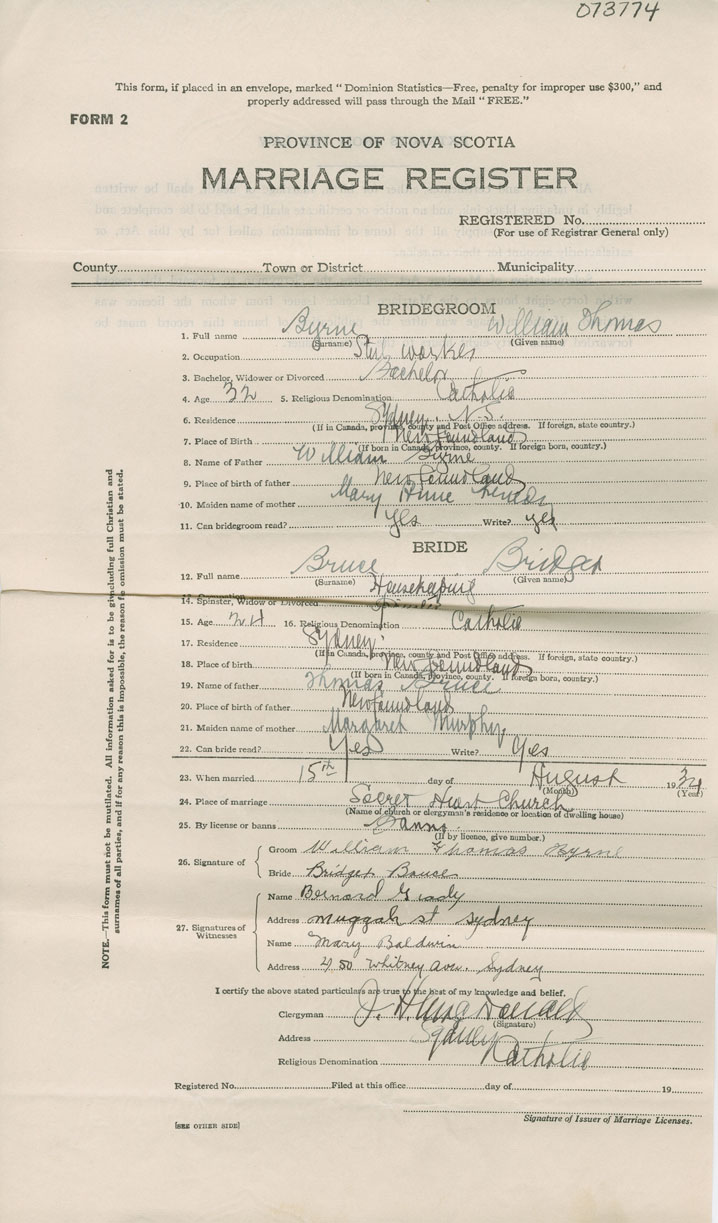 073774
This form, if placed in an envelope, marked "Dominion Statistics—Free, penalty for improper use $300," and
properly addressed will pass through the Mail "FREE."
FORM 2
PROVINCE OF NOVA SCOTIA
MARRIAGE REGISTER
REGISTERED No.
(For use of Registrar General only)
County Town or District Municipality
BRIDEGROOM
1. Full name Byrne William Thomas
(Surname) (Given name)
2. Occupation Steel worker
3. Bachelor, Widower or Divorced Bachelor
4. Age 32 5. Religious Denomination Catholic
6. Residence Sydney. N.S.
(If in Canada, province, county and Post Office address. If foreign, state country.)
7. Place of Birth Newfoundland
(If born in Canada, province, county. If foreign born, country.)
8. Name of Father William Byrne
9. Place of birth of father Newfoundland
10. Maiden name of mother Mary Anne
11. Can bridegroom read? Yes Write? yes
BRIDE
12. Full name Bruce Bridget
(Surname) (Given name)
Housekeeping
14. Spinster, Widow or Divorced Spinster
15. Age 24 16. Religious Denomination Catholic
17. Residence Sydney.
(If in Canada, province, county and Post Office address. If foreign, state country.)
18. Place of birth Newfoundland
(If born in Canada, province, county. If foreign born, country.)
19. Name of father Thomas Bruce
20. Place of birth of father Newfoundland
21. Maiden name of mother Margaret Murphy
22. Can bride read? Yes Write? Yes
23. When married 15th day of August 1934
(Month) (Year)
24. Place of marriage Secret Heart Church
(Name of church or clergyman's residence or location of dwelling house)
25. By license or banns Banns.
(If by licence, give number.)
26. Signature of Groom William Thomas Byrne
Bride Bridget Bruce
27. Signatures of Witnesses Name Bernard Grady
Address Muggah st Sydney
Name Mary Baldwin
Address 450 Whitney ave. Sydney
I certify the above stated particulars are true to the best of my knowledge and belief.
Clergyman J. H. MacDonald
(Signature)
Address Sydney
Religious Denomination Catholic
Registered No. Filed at this office day of 19
Signature of Issuer of Marriage Licenses.
[SEE OTHER SIDE]
NOTE.—This form must not be mutilated. All information asked for is to be given including full Christian and
surnames of all parties, and if for any reason this is impossible, the reason for omission must be stated.